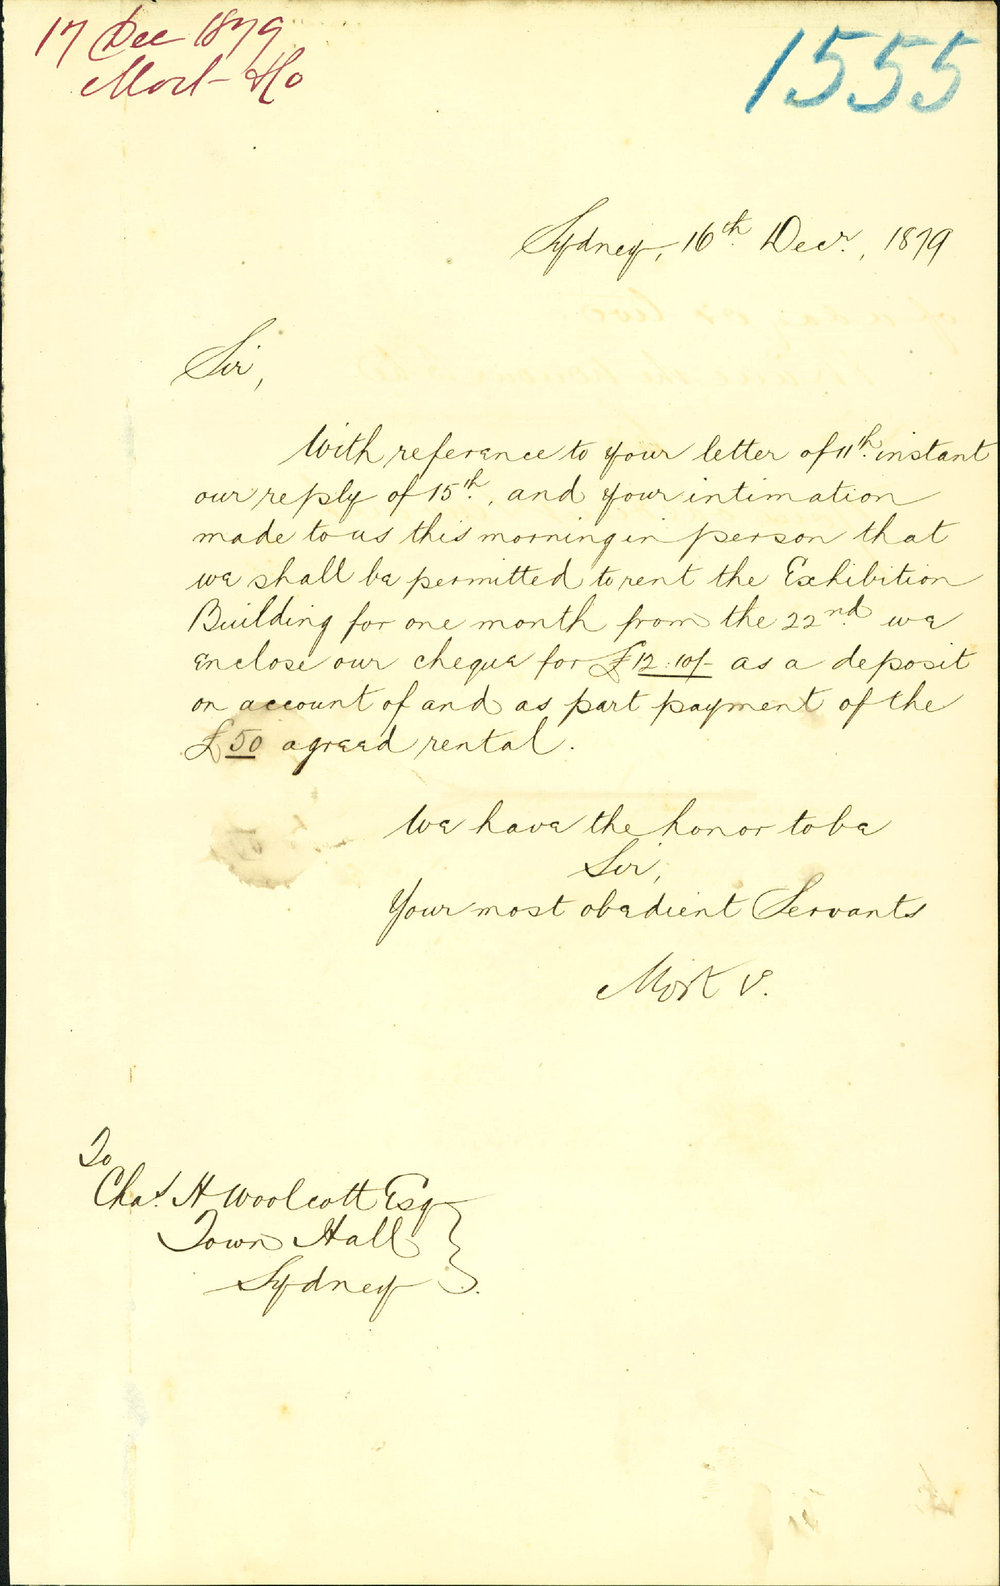 17 Dec 1879
Mort & Co
1555
Sydney, 16th Decr., 1879
Sir,
With reference to your letter of 11th instant
our reply of 15th, and your intimation
made to us this morning in person that
we shall be permitted to rent the Exhibition
Building for one month from the 22nd we
enclose our cheque for £12.10/- as a deposit
on account of and as part payment of the
£50 agreed rental.
We have the honor to be
Sir,
Your most obedient Servants
Mort
To
Chas. H Woolcott Esq
Town Hall
Sydney